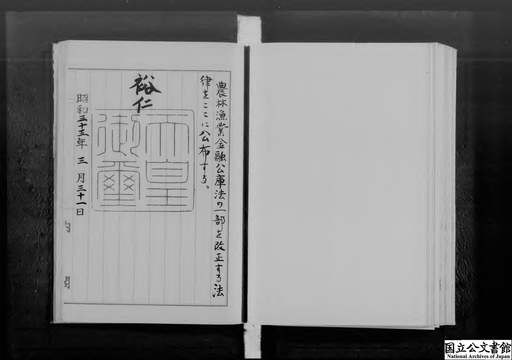 農林漁業金融公庫法の一部を改正する法
律をここに公布する。
裕仁
天皇御璽
昭和三十五年三月三十一日
国立公文書館
National Archives of Japan